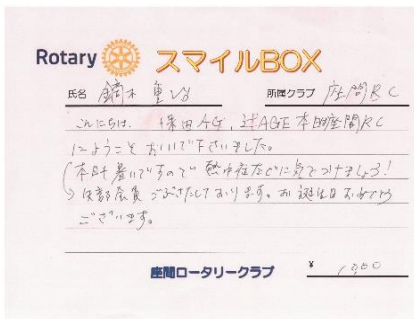 Rotary スマイルBOX
氏名 鏑木 重 所属クラブ 座間RC
こんにちは. 保田 AGE 本日座間RC
にようこそおいで下さいました。
本日も暑いですので熱中症などに気をつけましょう!
会員ごぶさたしております。お誕生日おめでとう
ございます。
座間ロータリークラブ ¥